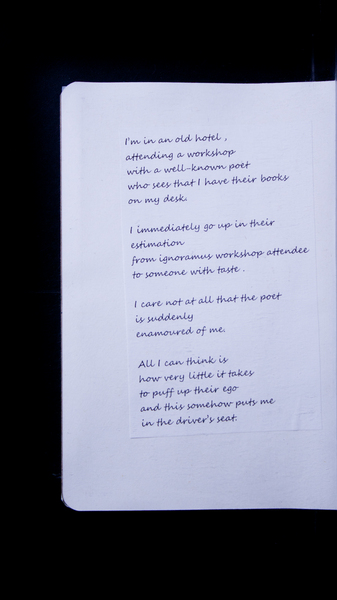 I'm in an old hotel,
attending a workshop
with a well-known poet
who sees that I have their books
on my desk.
I immediately go up in their
estimation
from ignoramus workshop attendee
to someone with taste.
I care not at all that the poet
is suddenly
enamoured of me.
All I can think is
how very little it takes
to puff up their ego
and this somehow puts me
in the driver's seat.